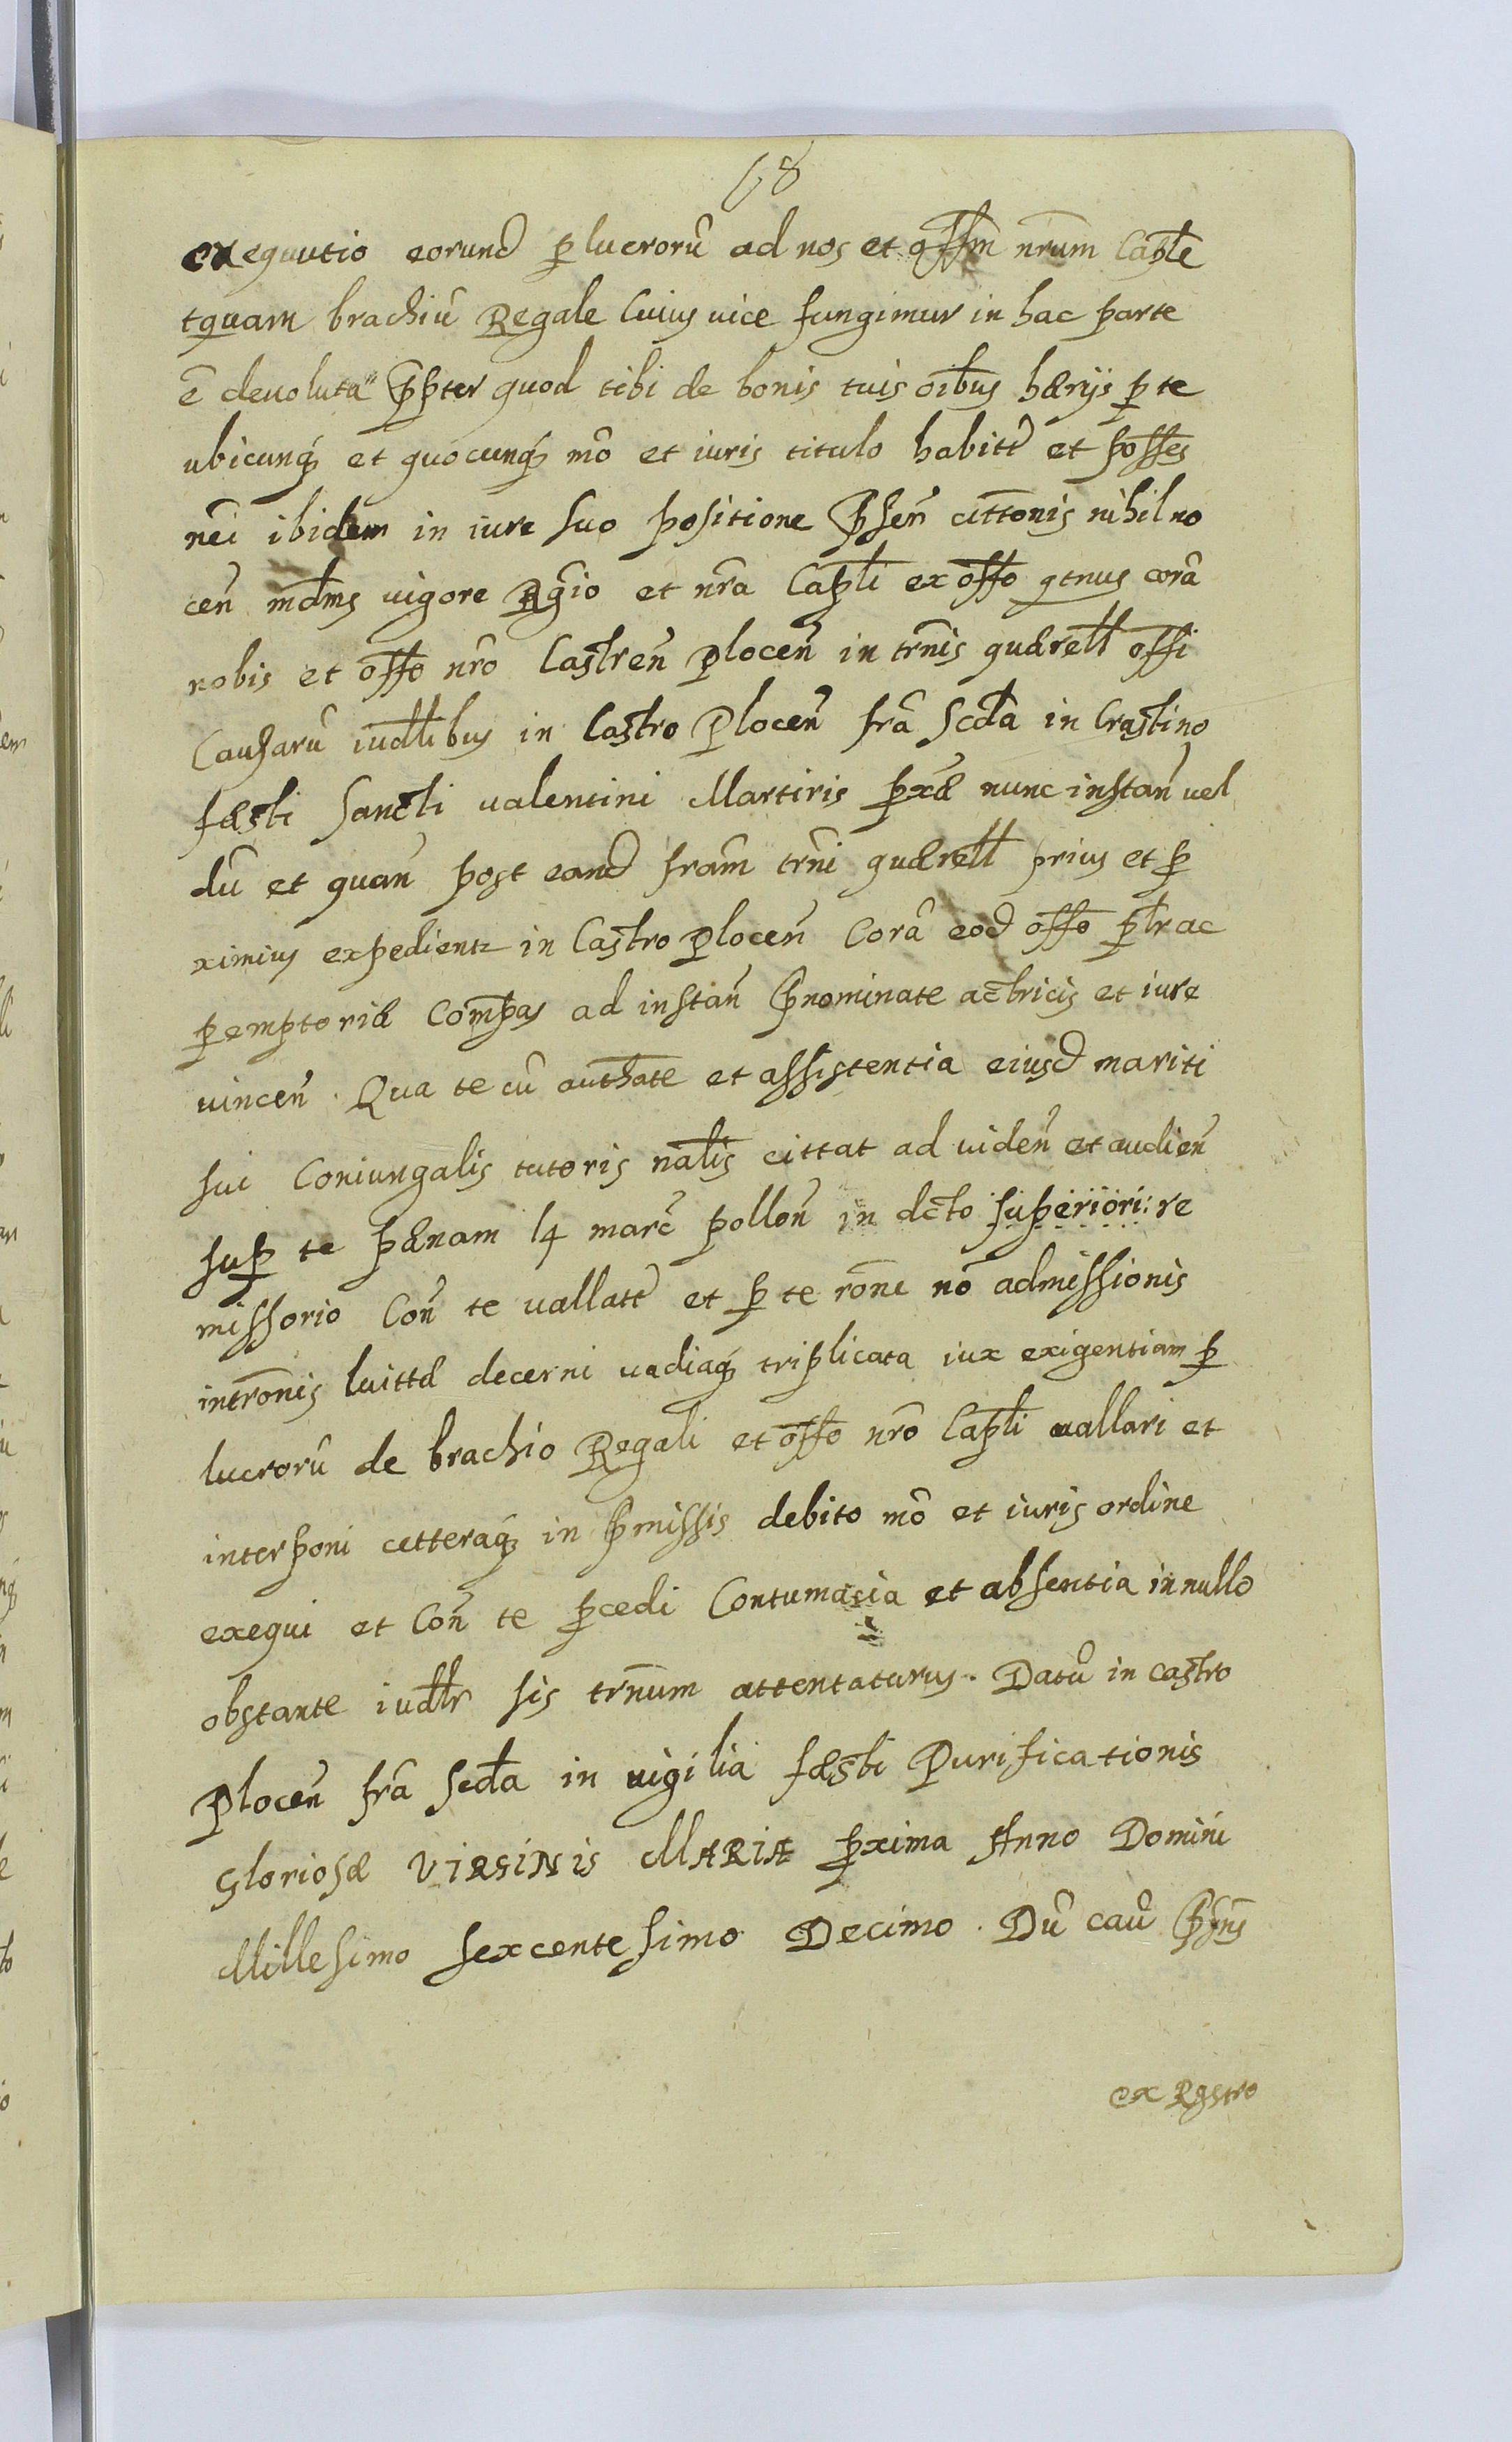 68
exequutio eorund p lucrorũ ad nos et offm nrum Caple
tquam brachiũ Regale Cuius vice fungimur in hac parte
ẽ deuoluta ppter quod tibi de bonis tuis oibus hærijs p te
ubicunqȝ et quocunqȝ mõ et iuris titulo habitt et posses
nei ibidem in iure suo positione Psen cittonis nihil no
cen mdms vigore Rgio et nra Capli ex offo qtnus corã
nobis et offo nro Castren Plocen in trnis quærell offi
Causarũ iudlibus in Castro Plocen frã Scda in Crastino
fæsti Sancti valentini Martiris pxæ nunc instan vel
dũ et quan post eand fram trni quærell prius et p
ximius expedientz in Castro Plocen Corã eod offo pltr ac
pemptoriæ Compas ad instan Pnominate actricis et iure
vincen. Qua te cũ authate et assistentia eiusd mariti
sui Coniungalis tutoris nalis cittat ad viden et audien
sup te pænam 14 marc pollon in dcto superiori: re
missorio Con te vallatt et p te rone nõ admissionis
intronis luittæ decerni vadiaqȝ triplicata iux exigentiam p
lucrorũ de brachio Regali et offo nro Capli vallari et
interponi cetteraqȝ in Pmissis debito mõ et iuris ordine
exequi et Con te pcedi Contumacia et absentia in nullo
obstante iudlr sis trnum attentaturus. Datũ in castro
Plocen frã Scda in vigilia fæsti Purificationis
Gloriosæ VIRGINIS MARIÆ pxima Anno Domini
Millesimo sexcentesimo Decimo. Dũ cau Psns
ex Rgstro